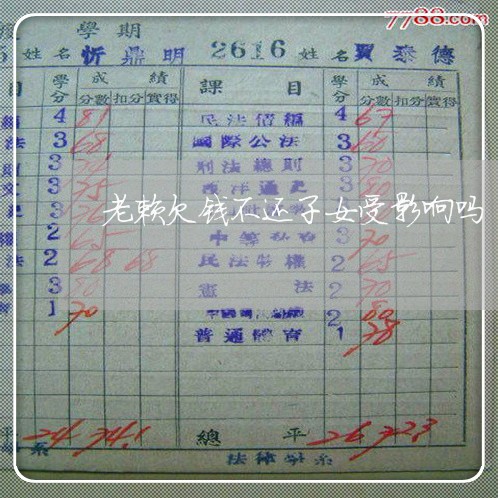 7788.com
學期
姓名 忻鼎明 2616 姓名 賈泰德
目 學分 成績 課目 學分 成績
分數 扣分 實得 分數 扣分 實得
4 81 民法債編 4 67
法 3 68 國際公法 3 60
3 刑法總則 3 70
3 75 西洋通史 3 80
3 76 3
老赖欠钱不还子女受影响吗
2 65 3 70
法 2 68 68 民法物權 2 65
3 80 憲法 2 70
1 70 2 80
普通體育 1 78
平 24 74.1 總平 26 72.3
系 法律學系